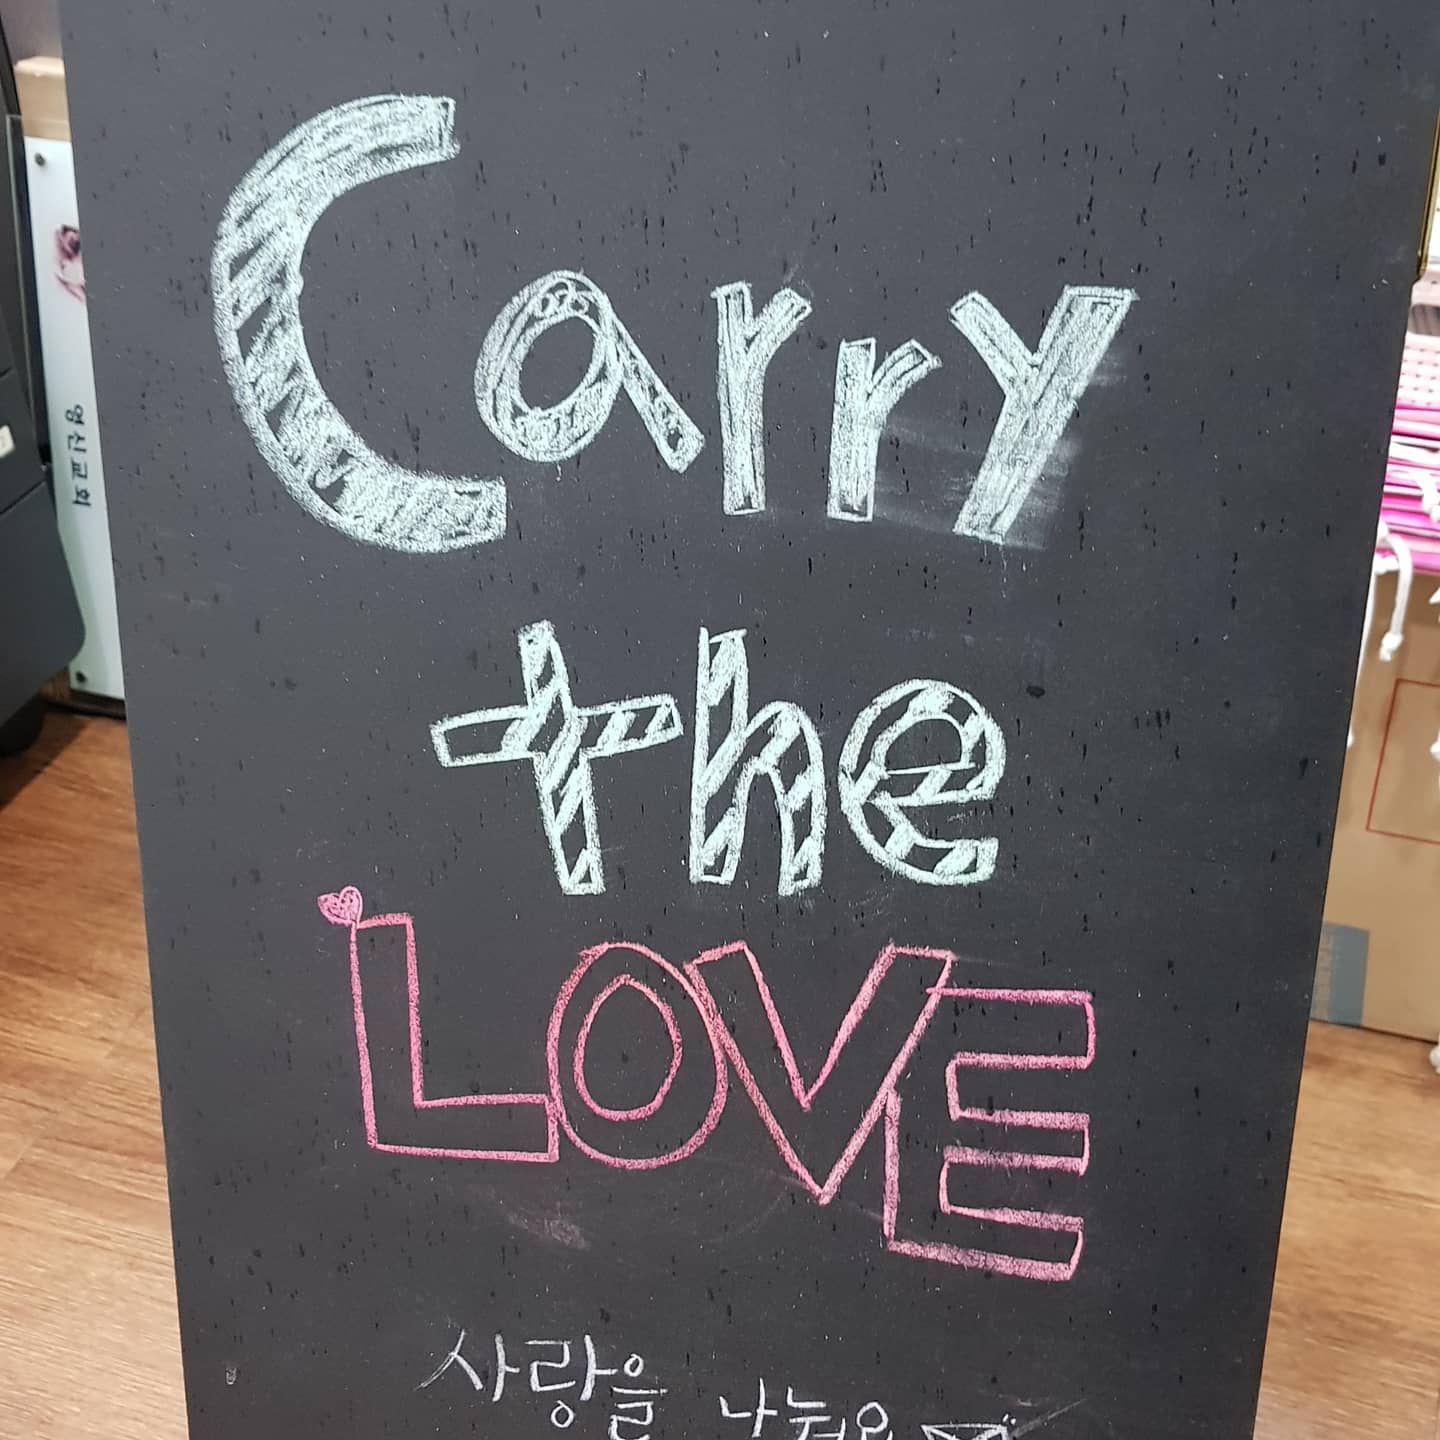 Carry
the
LOVE
사랑을 나눠요
영신교회